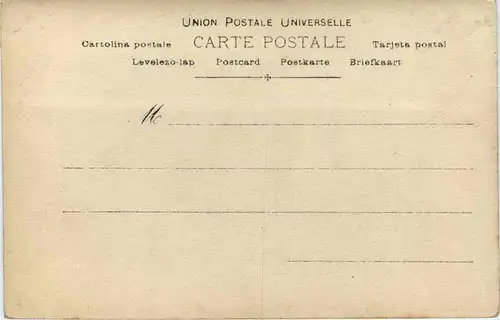 UNION POSTALE UNIVERSELLE
Cartolina postale CARTE POSTALE Tarjeta postal
Levelezo-lap Postcard Postkarte Briefkaart